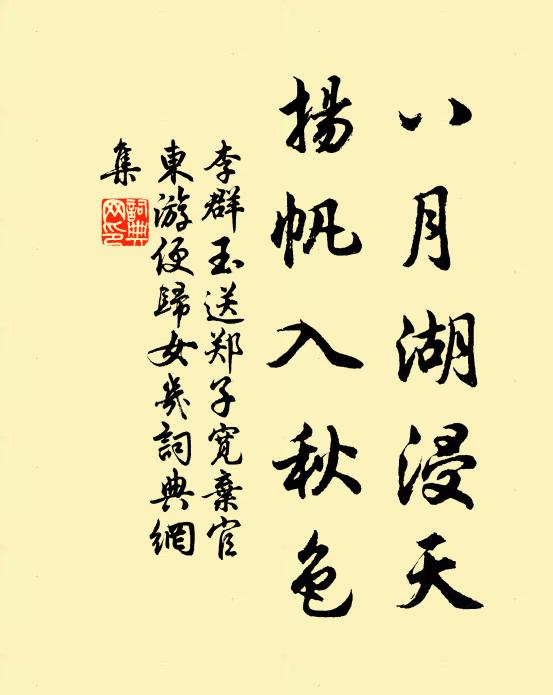 八月湖浸天
揚帆入秋色
李群玉送郑子寬棄官
東游便歸女幾詞典網
集
詞典
网印